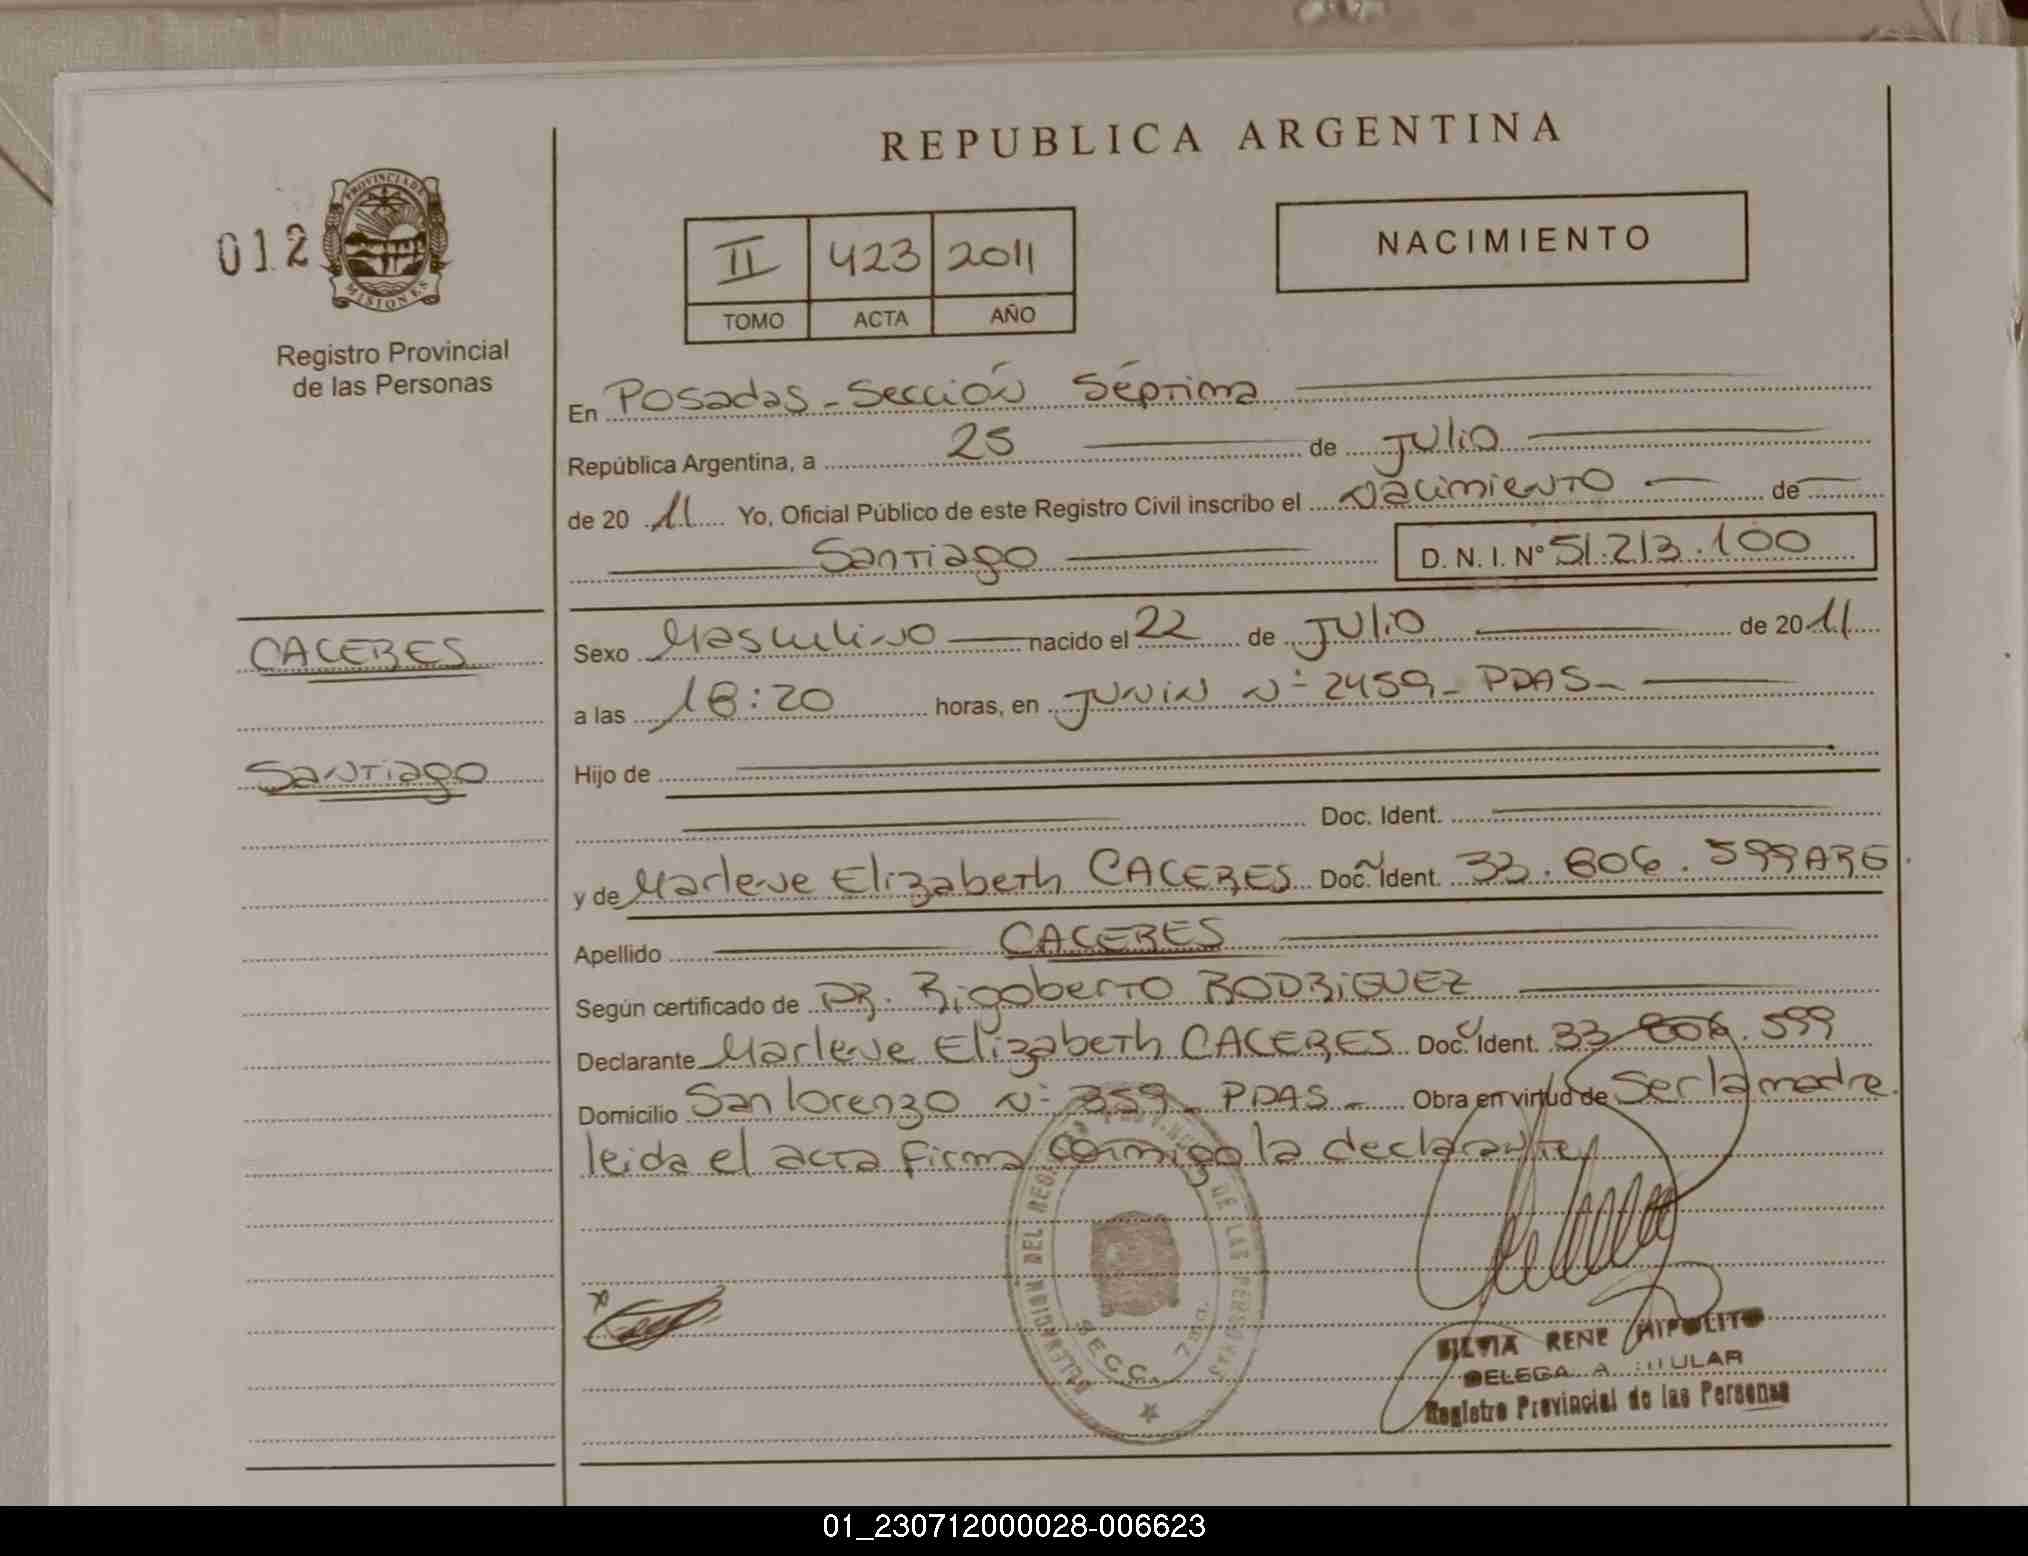 REPUBLICA ARGENTINA
012
PROVINCIA DE
MISIONES
Registro Provincial
de las Personas
II 423 2011
TOMO ACTA AÑO
NACIMIENTO
En Posadas - Sección Séptima
República Argentina, a 25 de Julio
de 20 11 Yo, Oficial Público de este Registro Civil inscribo el Nacimiento de
Santiago D. N. I. N° 51.213.100
CACERES
Santiago
Sexo Masculino nacido el 22 de Julio de 20 11
a las 18:20 horas, en Junin N° 2459 - PDAS -
Hijo de
Doc. Ident.
y de Marlene Elizabeth CACERES Doc. Ident. 33.806.599 ARG
Apellido CACERES
Según certificado de DR. Rigoberto RODRIGUEZ
Declarante Marlene Elizabeth CACERES Doc. Ident. 33.806.599
Domicilio San lorenzo N° 359 - PDAS - Obra en virtud de Ser la madre
leida el acta firma conmigo la declarante
DELEGACION DEL REG. PROVINCIAL DE LAS PERSONAS
SECC. 7ma.
SILVIA RENE HIPOLITO
DELEGADA TITULAR
Registro Provincial de las Personas
01_230712000028-006623